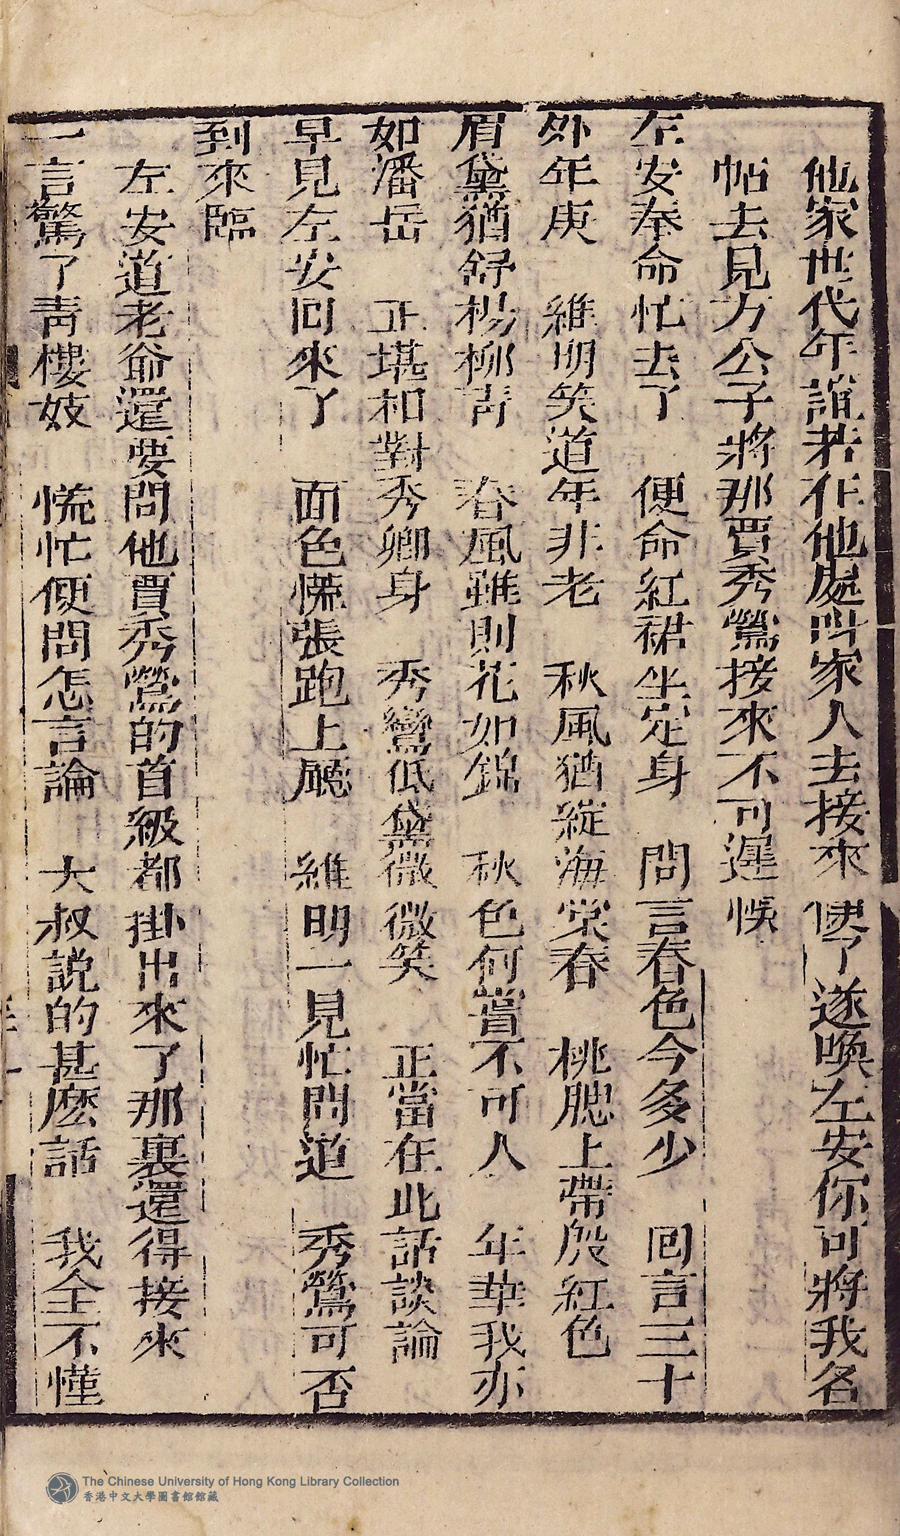 他家世代年誼若在他處叫家人去接來便了遂喚左安你可將我名
帖去見方公子將那賈秀鶯接來不可遲悞
左安奉命忙去了　便命紅裙坐定身　問言春色今多少　回言三十
外年庚　維明笑道年非老　秋風猶綻海棠春　桃腮上帶殷紅色
眉黛猶舒楊柳青　春風雖則花如錦　秋色何嘗不可人　年華我亦
如潘岳　正堪相對秀卿身　秀鸞低黛微微笑　正當在此話談論
早見左安回來了　面色慌張跑上廳　維明一見忙問道　秀鶯可否
到來臨
左安道老爺還要問他賈秀鶯的首級都掛出來了那裏還得接來
一言驚了青樓妓　慌忙便問怎言論　大叔説的甚麽話　我全不懂
The Chinese University of Hong Kong Library Collection
香港中文大學圖書館館藏